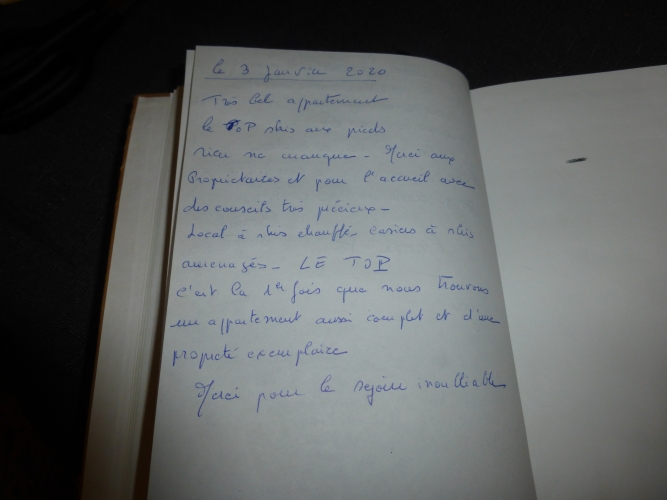 le 3 Janvier 2020
Très bel appartement
le TOP skis aux pieds
rien ne manque - Merci aux
Propriétaires et pour l'accueil avec
des conseils très précieux -
Local à skis chauffé, casiers à skis
aménagés - LE TOP
C'est la 1er fois que nous trouvons
un appartement aussi complet et d'une
propreté exemplaire
Merci pour le séjour inoubliable